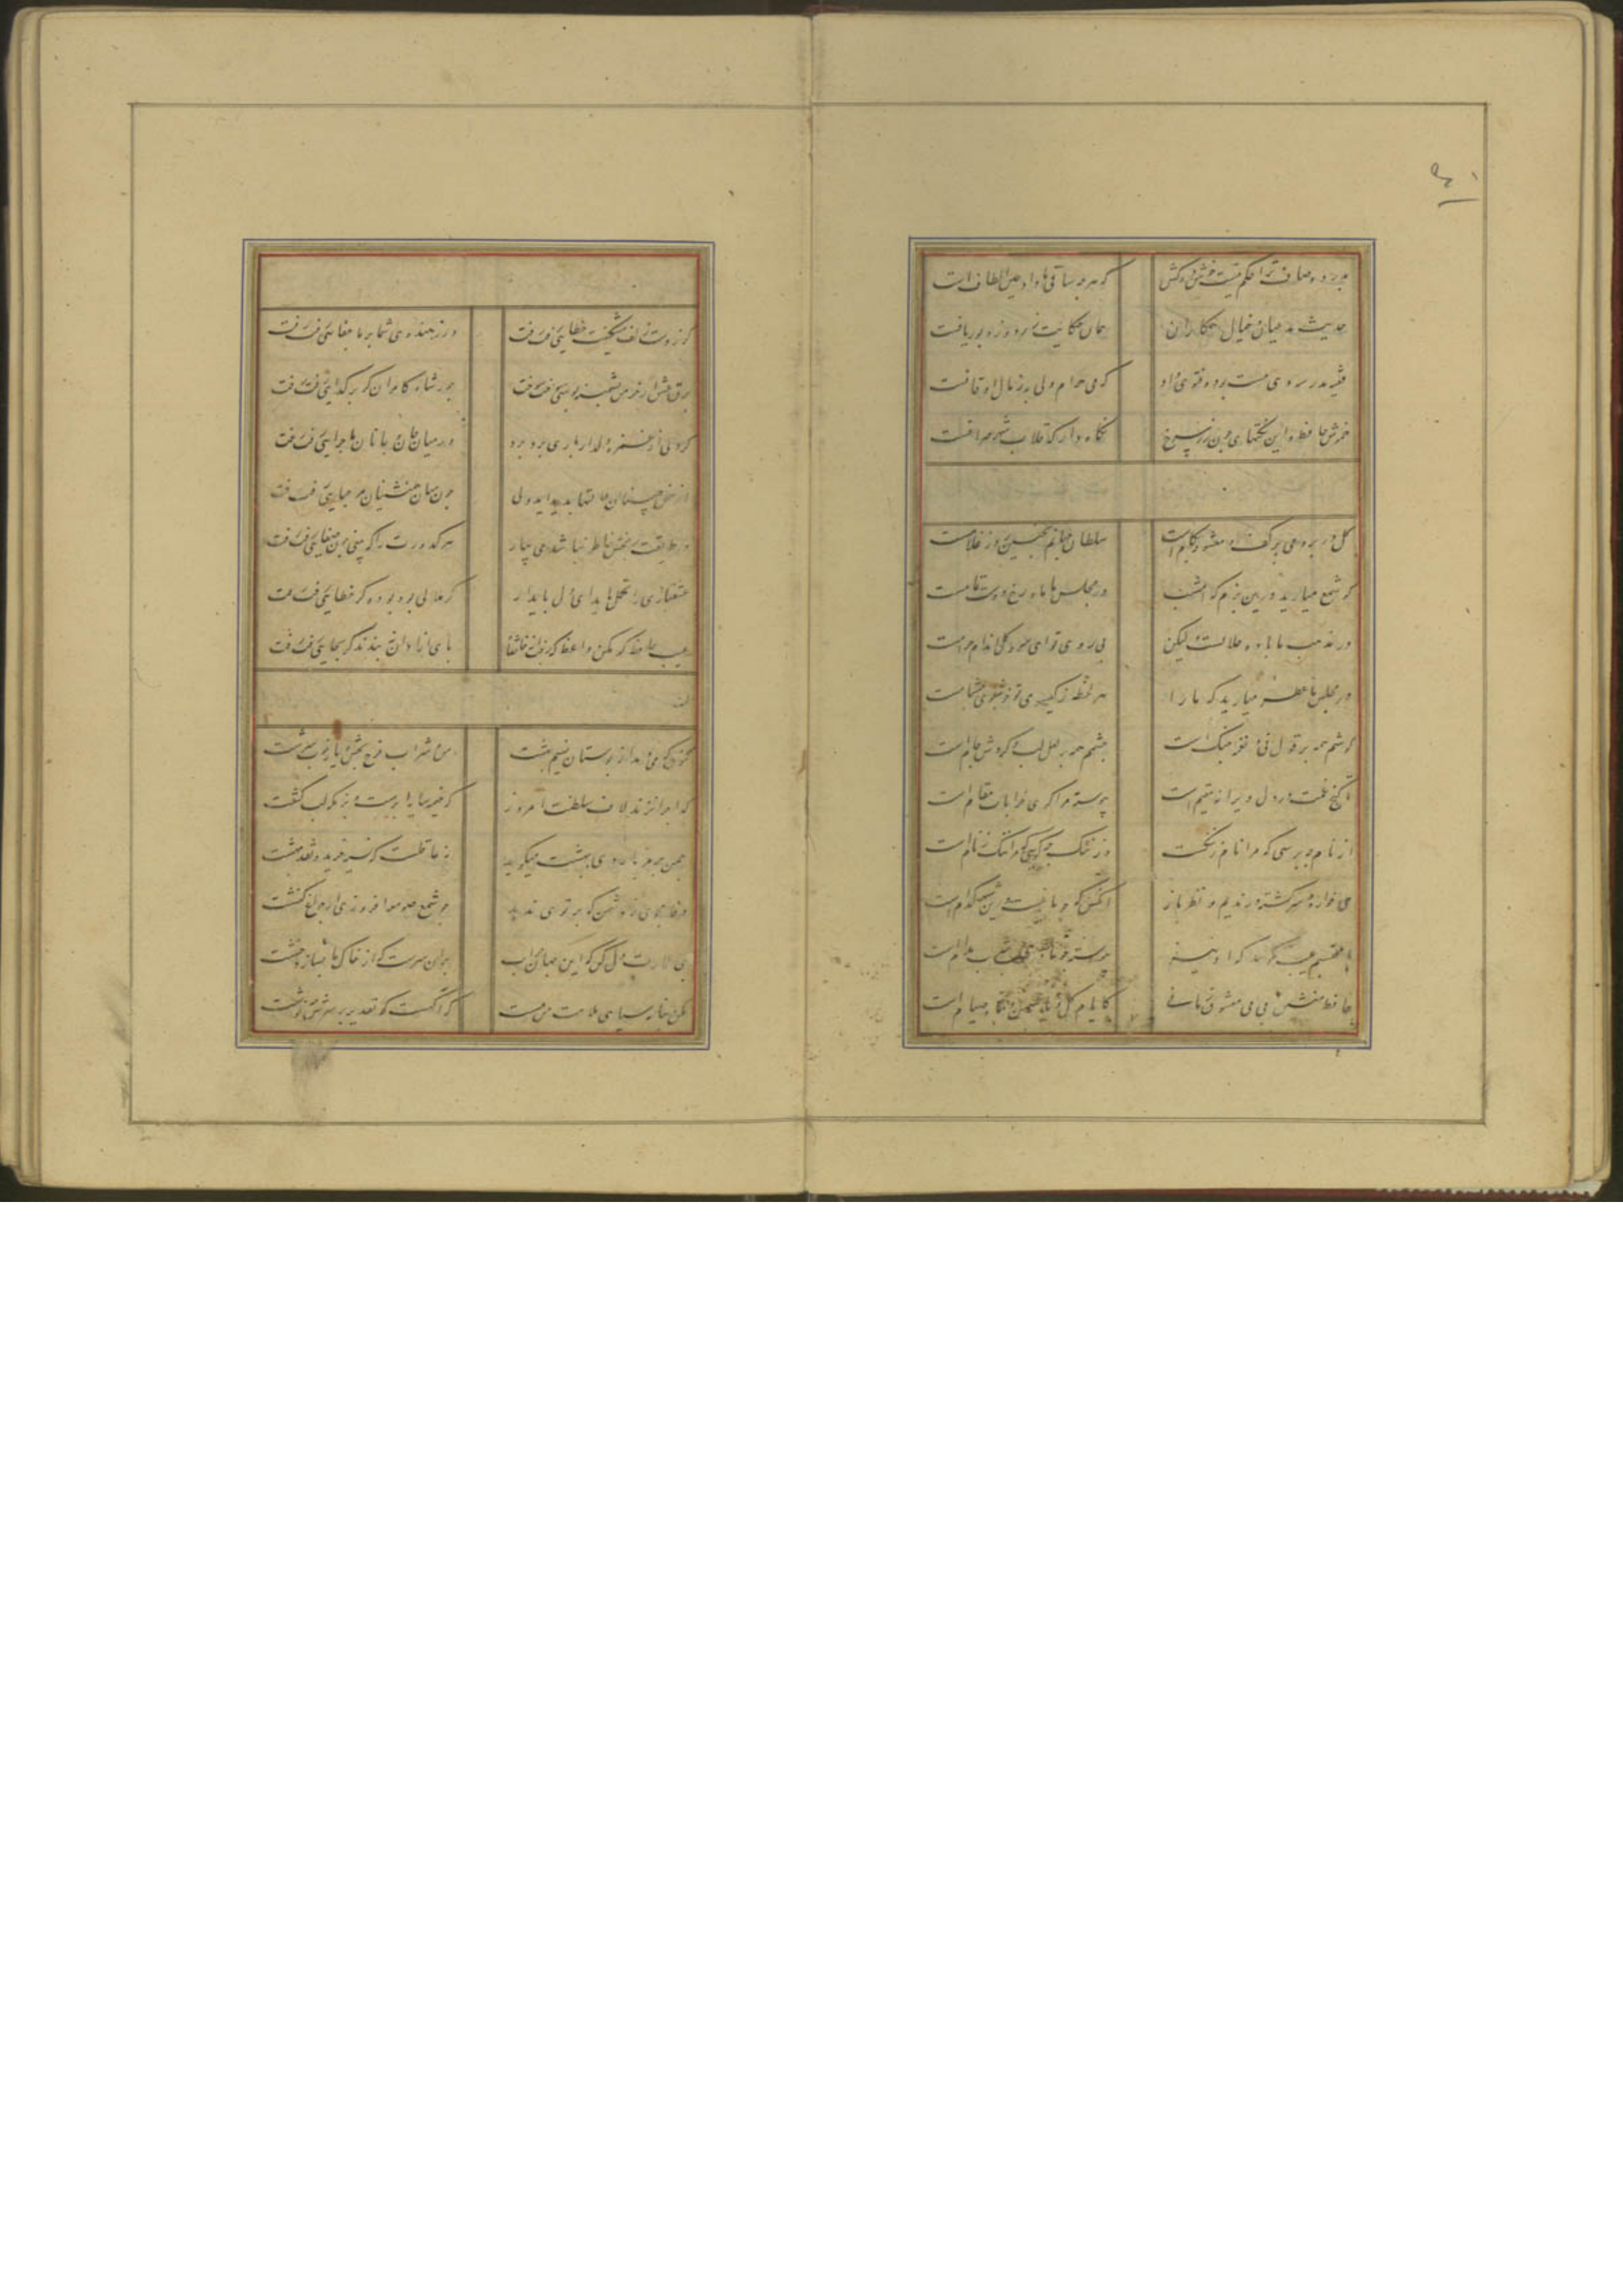 بدرد و صاف ترا حکم نیست خوش درکش
که هر چه ساقی ما داد عین الطافست
حدیث مدعیان و خیال همکاران
همان حکایت زردوز و بوریابافست
فقیه مدرسه دی مست بود و فتوی داد
که می حرام ولی به ز مال اوقافست
خموش حافظ و این نکتهای چون زر سرخ
نگاه دار که قلاب شهر صرافست
گل در بر و می بر کف و معشوق بکامست
سلطان جهانم بچنین روز غلامست
گو شمع میارید درین بزم که امشب
در مجلس ما ماه رخ دوست تمامست
در مذهب ما باده حلالست ولیکن
بی روی تو ای سرو گل اندام حرامست
در مجلس ما عطر میارید که ما را
هر لحظه ز گیسوی تو خوشبوی مشامست
گوشم همه بر قول نی و نغمه چنگ است
چشمم همه بر لعل لب و گردش جامست
تا گنج غمت در دل ویرانه مقیم است
پیوسته مرا کوی خرابات مقامست
از نام چه پرسی که مرا نام ز ننگست
وز ننگ چه گویی که مرا ننگ ز نامست
می خواره و سرگشته و رندیم و نظرباز
انکس که چو ما نیست درین شهر کدامست
با محتسبم عیب مگویید که او نیز
پیوسته چو ما در طلب مدامست
حافظ منشین بی می و معشوق زمانی
کایام گل و یاسمن و صیامست
گر ز دست زلف مشکینت خطایی رفت رفت
ور ز هندوی شما بر ما جفایی رفت رفت
برق عشق ار خرمن پشمینه پوشی سوخت سوخت
جور شاه کامران گر بر گدایی رفت رفت
گر دلی از غمزه دلدار باری برد برد
در میان جان و جانان ماجرایی رفت رفت
از سخن چینان ملالتها پدید آید ولی
چون میان همنشینان ماجرایی رفت رفت
در طریقت رنجش خاطر نباشد می بیار
هر کدورت را که بینی چون صفایی رفت رفت
عشقبازی را تحمل باید ای دل پای دار
گر ملالی بود بود و گر خطایی رفت رفت
عیب حافظ گو مکن واعظ که رفت از خانقاه
پای ازادان نبندند گر بجایی رفت رفت
کنون که می دمد از بوستان نسیم بهشت
من و شراب فرح بخش و یار خوب سرشت
گدا چرا نزند لاف سلطنت امروز
که خیمه سایه ابرست و بزمگه لب کشت
چمن حکایت اردی بهشت میگوید
نه عاقلست که نسیه خرید و نقد بهشت
وفا مجوی ز دشمن که پرتوی ندهد
چو شمع صومعه افروزی از چراغ کنشت
بمی عمارت دل کن که این جهان خراب
بران سرست که از خاک ما بسازد خشت
مکن بنامه سیاهی ملامت من مست
که اگهست که تقدیر بر سرش چه نوشت